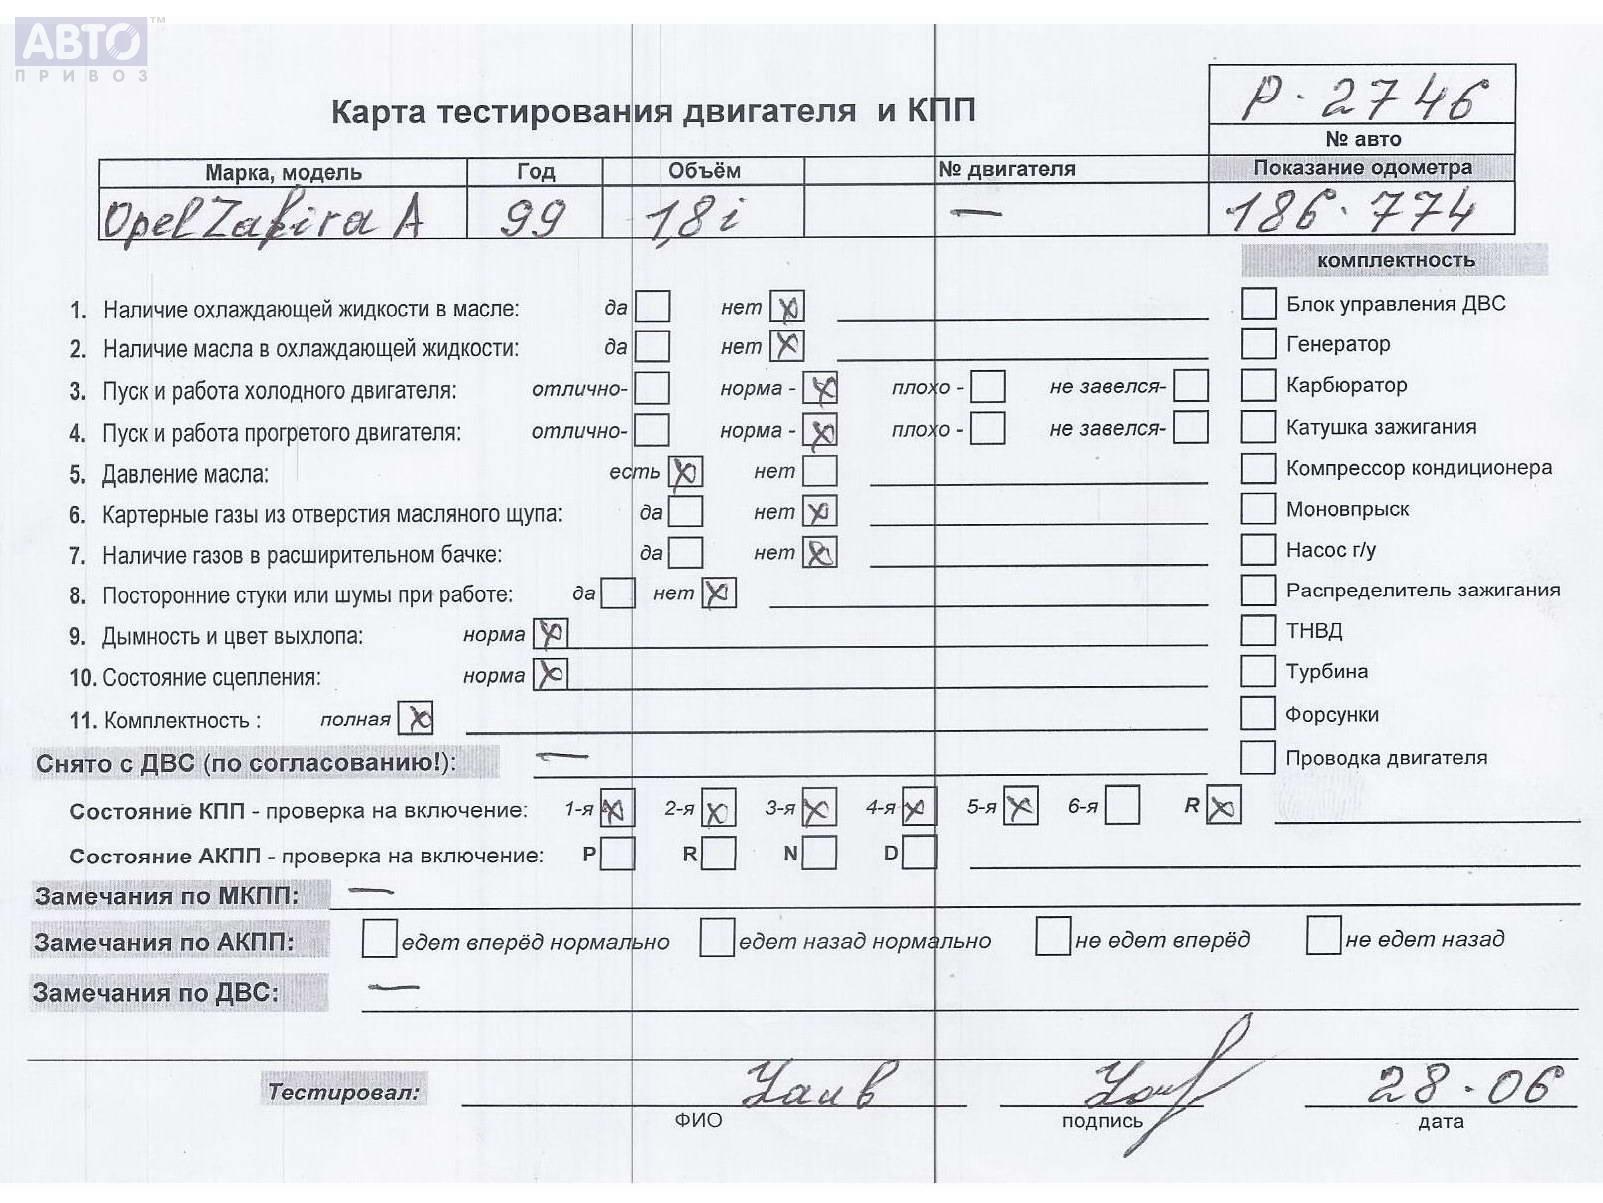 АВТО™
ПРИВОЗ
Р-2746
Карта тестирования двигателя и КПП
№ авто
Марка, модель Год Объём № двигателя Показание одометра
Opel Zafira A 99 1,8i — 186.774
комплектность
1. Наличие охлаждающей жидкости в масле: да нет Блок управления ДВС
2. Наличие масла в охлаждающей жидкости: да нет Генератор
3. Пуск и работа холодного двигателя: отлично- норма - плохо - не завелся- Карбюратор
4. Пуск и работа прогретого двигателя: отлично- норма - плохо - не завелся- Катушка зажигания
5. Давление масла: есть нет Компрессор кондиционера
6. Картерные газы из отверстия масляного щупа: да нет Моновпрыск
7. Наличие газов в расширительном бачке: да нет Насос г/у
8. Посторонние стуки или шумы при работе: да нет Распределитель зажигания
9. Дымность и цвет выхлопа: норма ТНВД
10. Состояние сцепления: норма Турбина
11. Комплектность : полная Форсунки
Снято с ДВС (по согласованию!): — Проводка двигателя
Состояние КПП - проверка на включение: 1-я 2-я 3-я 4-я 5-я 6-я R
Состояние АКПП - проверка на включение: P R N D
Замечания по МКПП: —
Замечания по АКПП: едет вперёд нормально едет назад нормально не едет вперёд не едет назад
Замечания по ДВС: —
Тестировал: 28.06
ФИО подпись дата